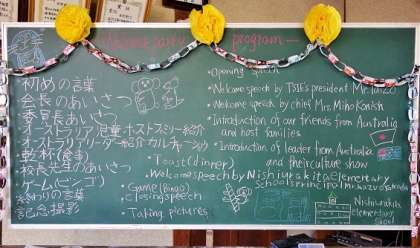 Welcome party program
初めの言葉
会長のあいさつ
委員長あいさつ
オーストラリア児童・ホストファミリー紹介
オーストラリアリーダー紹介 カルチャーショー
乾杯(食事)
校長先生のあいさつ
ゲーム(ビンゴ)
終わりの言葉
記念撮影
・Opening speech
・Welcome speech by president Mr.
・Welcome speech by chief Mrs. Miho Konishi
・Introduction of our friends from Australia
and host families
・Introduction of leader from Australia
and their culture show
・Toast (dinner)
・Welcome speech by Nishiurakita elementary
School's principal Mr.
・Game (Bingo)
・Closing speech
・Taking pictures
Nishiurakita
elementary
School